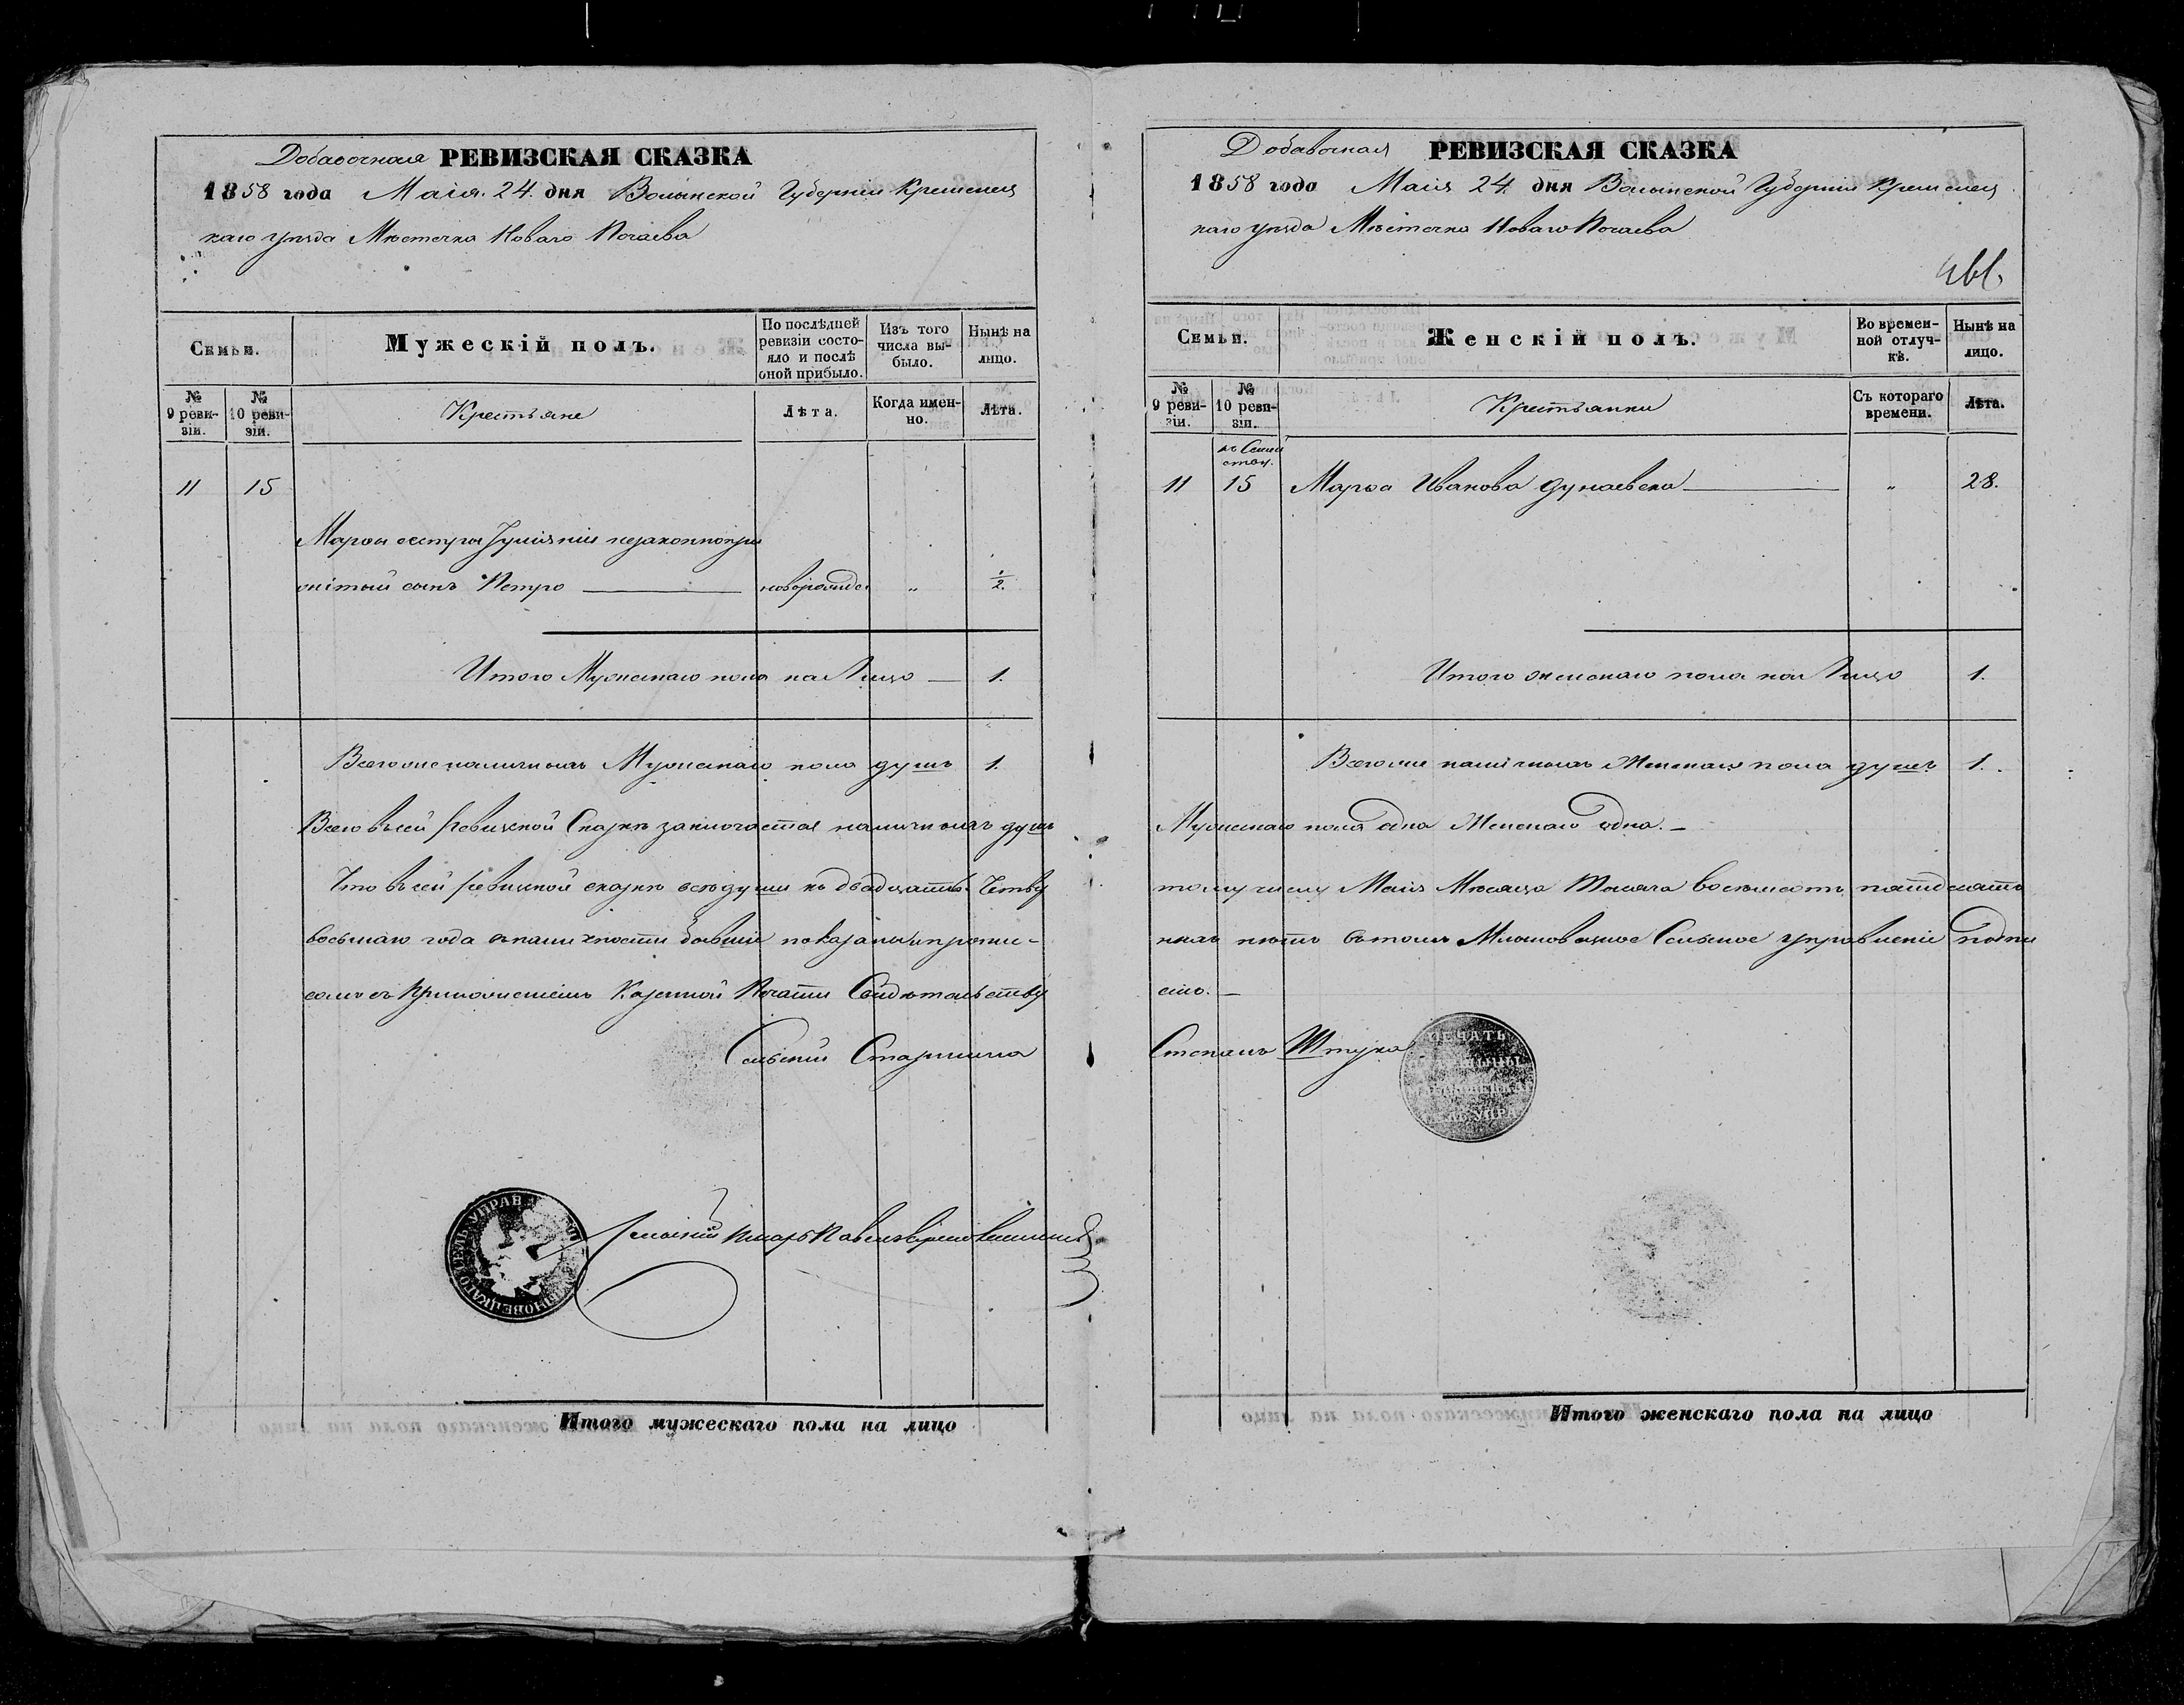 Добавочная РЕВИЗСКАЯ СКАЗКА
1858 года Маія 24. дня Волынской Губерніи Кременец
каго уезда Мѣстечка Новаго Почаева
Семьи.
Мужескій полъ.
По послѣдней ревизіи состояло и послѣ оной прибыло.
Изъ того числа выбыло.
Нынѣ на лицо.
№ 9 ревизіи.
№ 10 ревизіи.
Крестьяне
Лѣта.
Когда именно.
Лѣта.
11 15
Марфы сестры незаконнопри
житый сынъ Петро новорожде „ 1/2.
Итого Мужескаго пола на Лицо 1.
Всего наличныхъ Мужескаго пола душъ 1.
Всего въ сей Ревизской Сказкѣ заключается наличныхъ душъ
Что въ сей ревизской сказкѣ всѣ души къ двадцать Четве
восьмаго года въ наличности бывшіе показаны и пропи-
съ Приложеніемъ Казенной Печати Свидѣтельству
Сельскій Старшина
Сельскій Писарь Павел
Итого мужескаго пола на лицо
Добавочная РЕВИЗСКАЯ СКАЗКА
1858 года Маія 24. дня Волынской Губерніи Кременец
каго уезда Мѣстечка Новаго Почаева
Семьи.
Женскій полъ.
Во временной отлучкѣ.
Нынѣ на лицо.
№ 9 ревизіи.
№ 10 ревизіи.
Крестьянки
Съ котораго времени.
Лѣта.
11 15 Марфа Иванова Дунаевска „ 28.
Итого женскаго пола на Лицо 1.
Всего наличныхъ Женскаго пола душъ 1.
Мужескаго пола одна Женскаго одна.
тому числу Маія Мѣсяца Тысяча восемьсотъ пятдесятъ
нѣтъ въ томъ Сельское Управленіе подпи
емъ.
Степанъ Штука
ПЕЧАТЬ
Итого женскаго пола на лицо